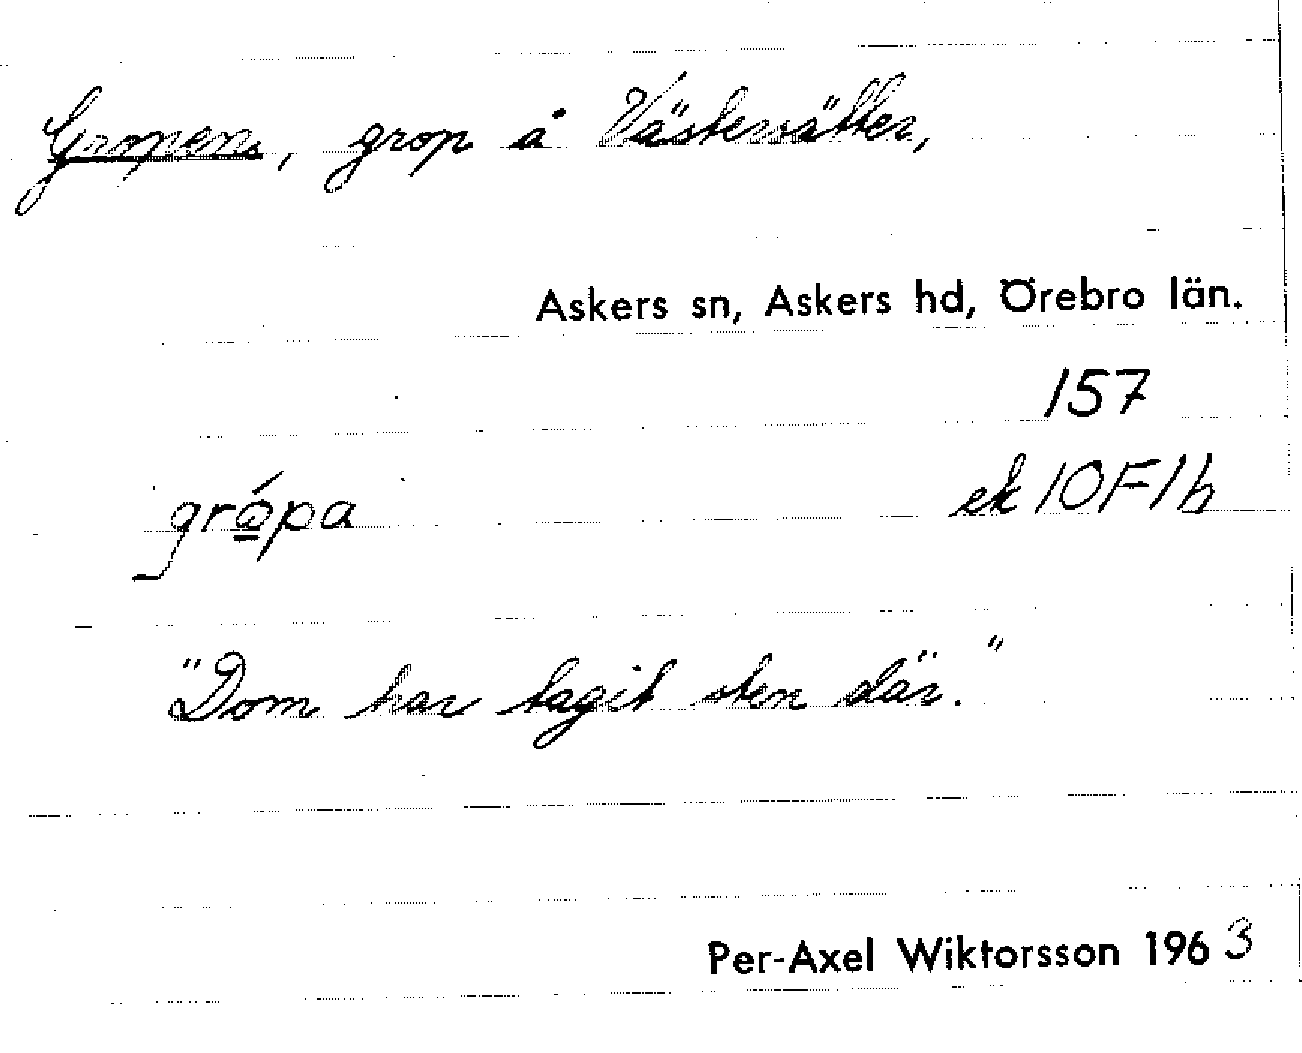 Gropen, grop å Västersätter,
Askers sn, Askers hd, Örebro län.
157
grópa ek 10F1h
"Dom har tagit sten där."
Per-Axel Wiktorsson 1963